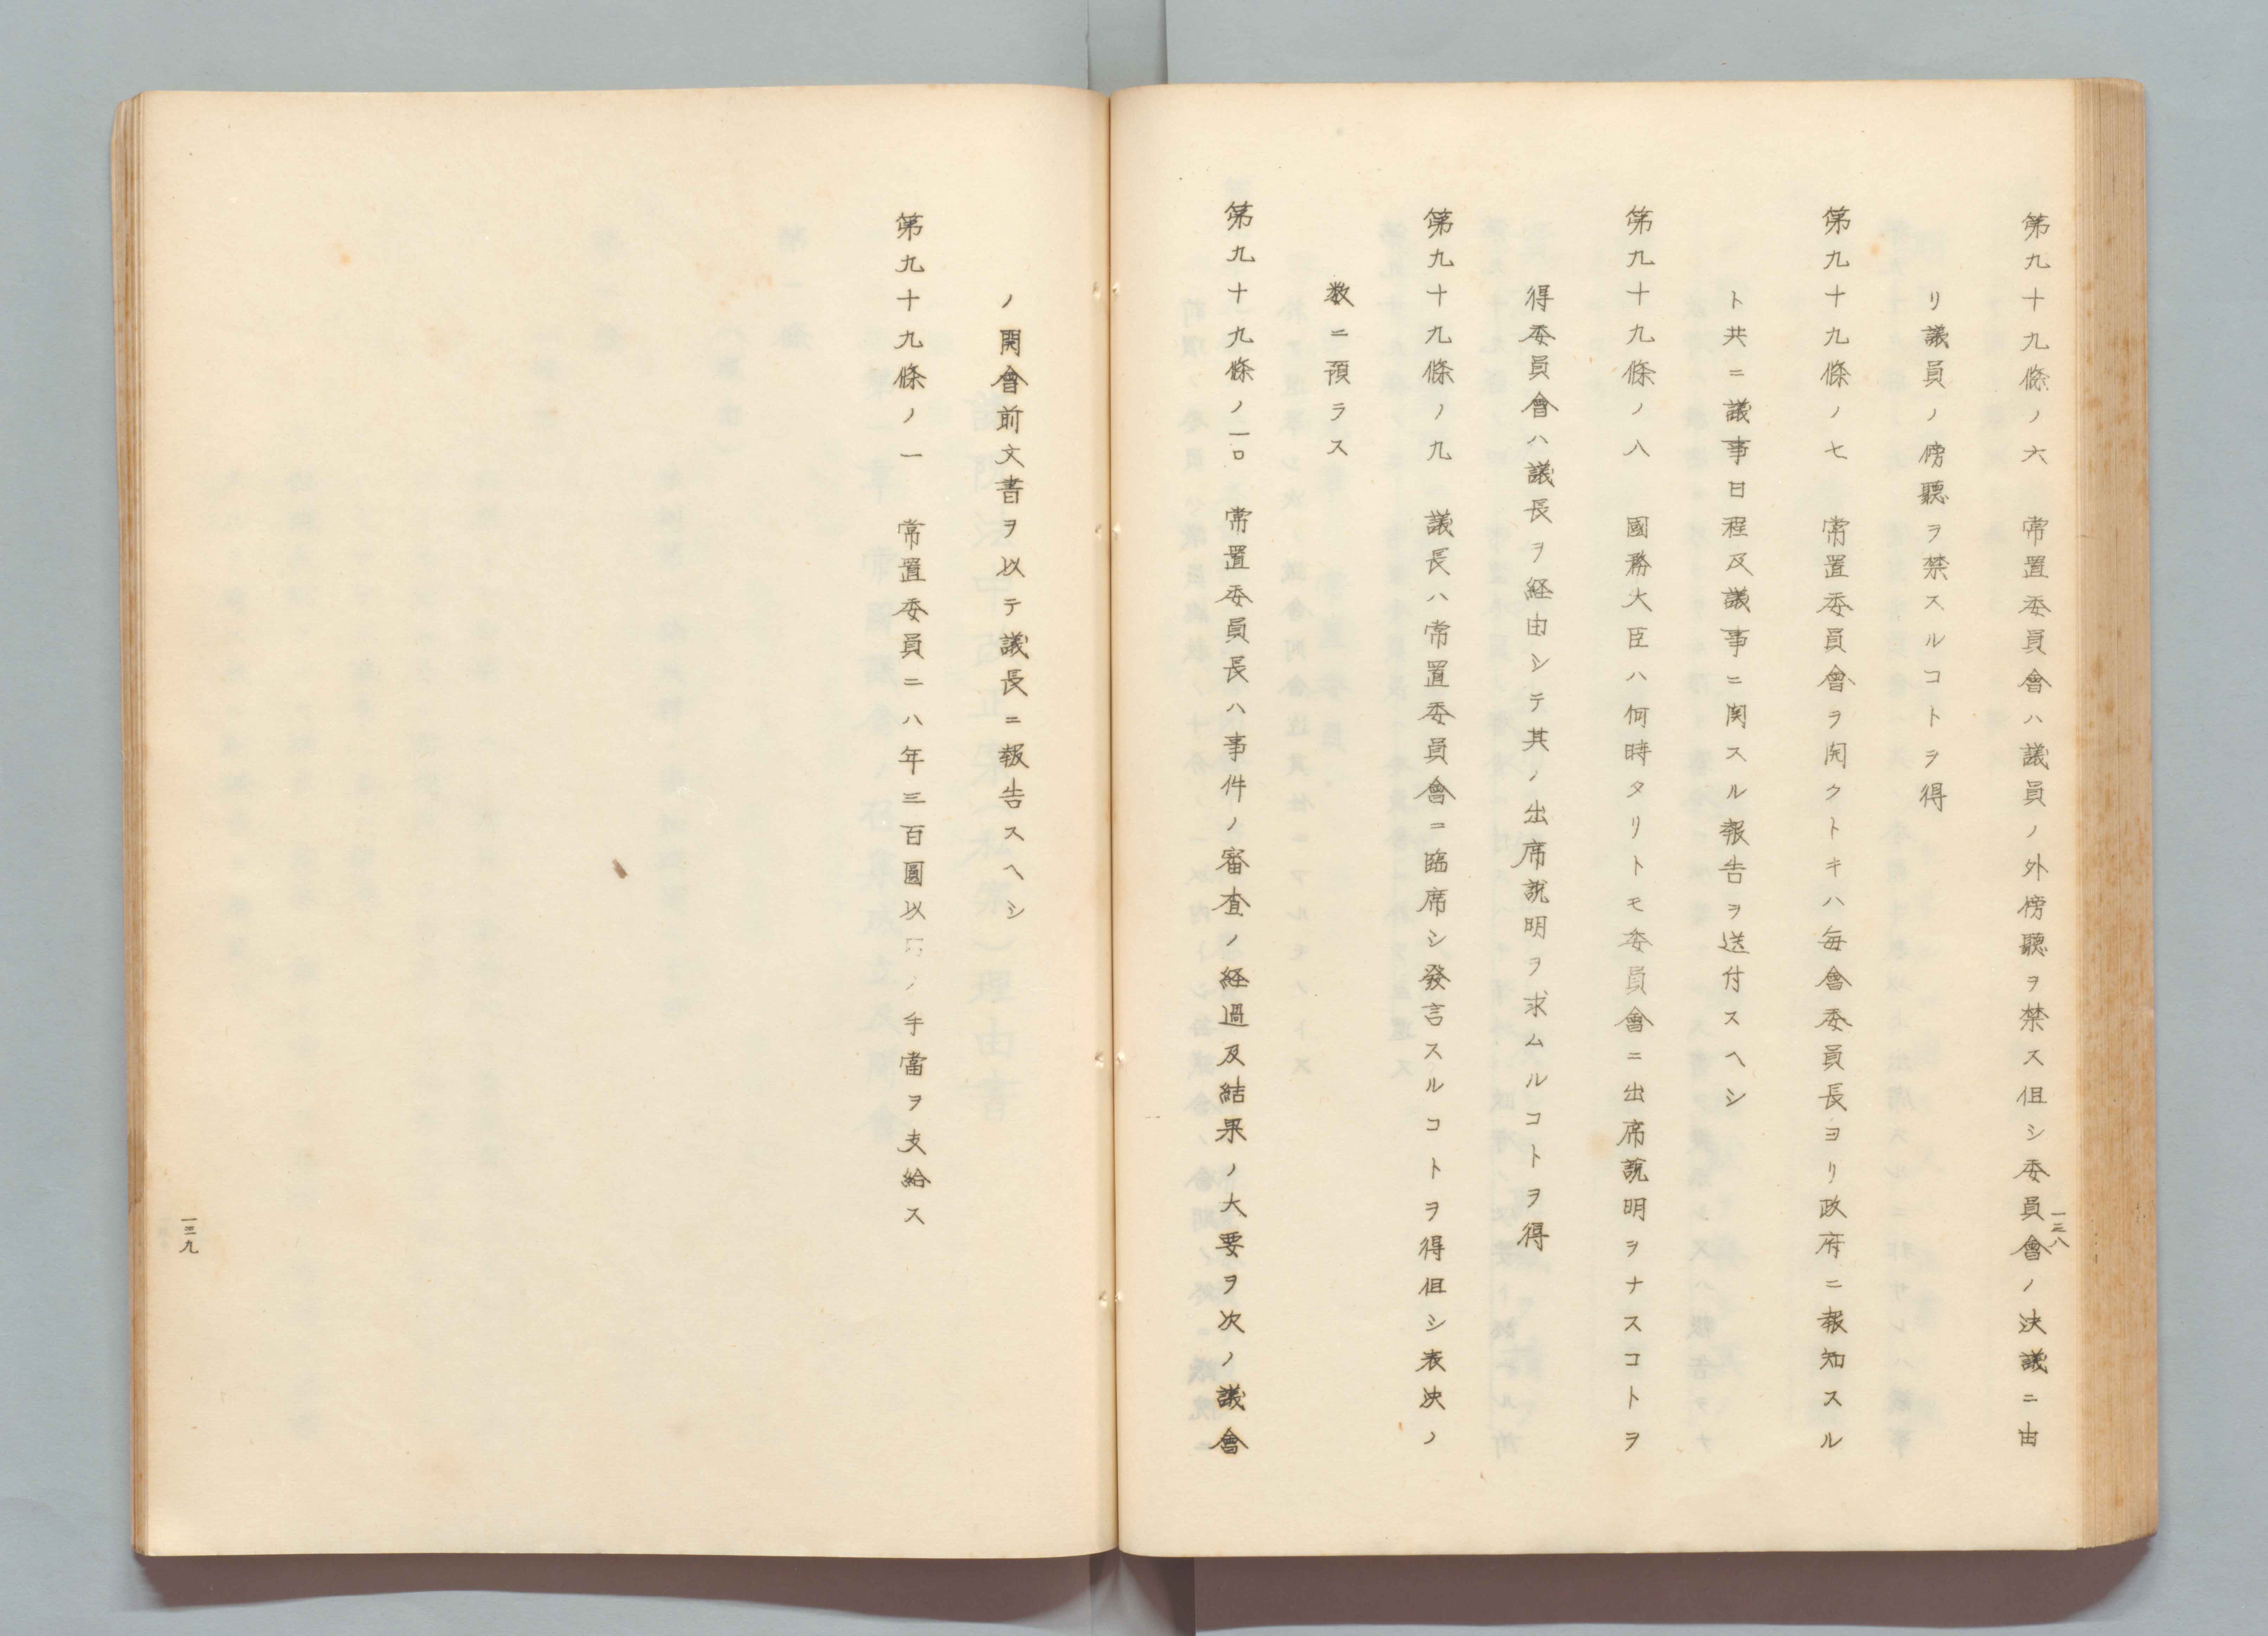 第九十九條ノ六　常置委員會ハ議員ノ外傍聽ヲ禁ス但シ委員會ノ決議ニ由
リ議員ノ傍聽ヲ禁スルコトヲ得
第九十九條ノ七　常置委員會ヲ開クトキハ毎會委員長ヨリ政府ニ報知スル
ト共ニ議事日程及議事ニ関スル報告ヲ送付スヘシ
第九十九條ノ八　國務大臣ハ何時タリトモ委員會ニ出席説明ヲナスコトヲ
得委員會ハ議長ヲ経由シテ其ノ出席説明ヲ求ムルコトヲ得
第九十九條ノ九　議長ハ常置委員會ニ臨席シ發言スルコトヲ得但シ表決ノ
数ニ預ラス
第九十九條ノ一〇　常置委員長ハ事件ノ審査ノ経過及結果ノ大要ヲ次ノ議會
一三八
ノ開會前文書ヲ以テ議長ニ報告スヘシ
第九十九條ノ一　常置委員ニハ年三百圓以内ノ手當ヲ支給ス
一三九